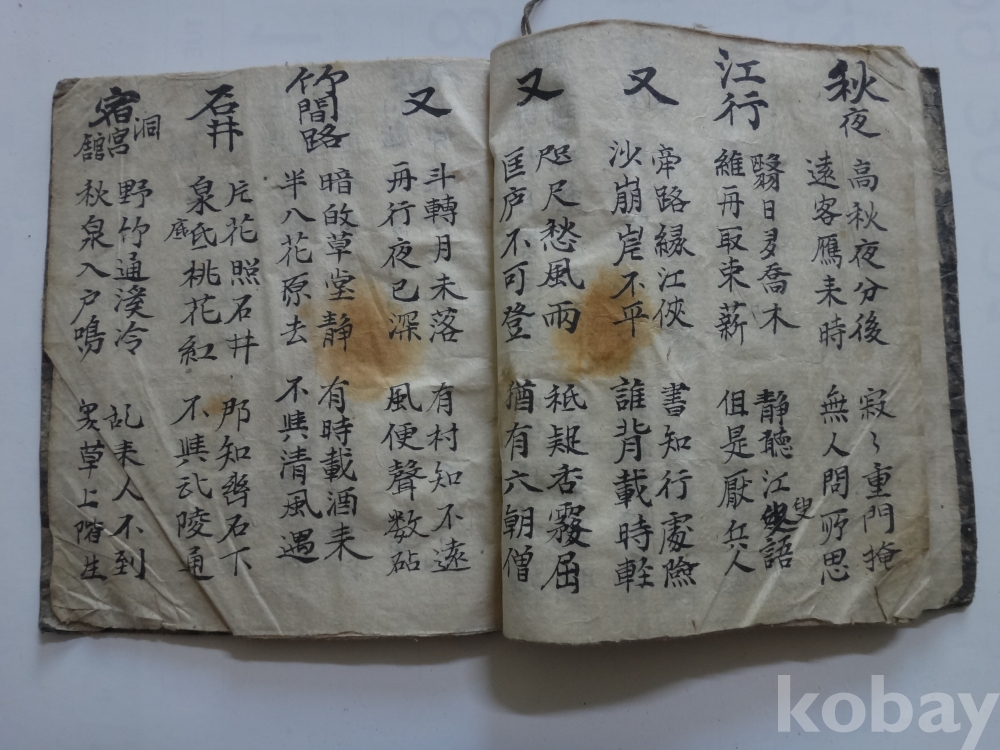 秋夜
高秋夜分後
遠客鴈来時
寂〻重門掩
無人問所思
江行
翳日多喬木
維舟取束薪
静聽江叟語
叟
但是厭兵人
又
牵路縁江俠
沙崩岸不平
書知行處險
誰背載時軽
又
咫尺愁風雨
匡庐不可登
秪疑杏霧屈
猶有六朝僧
又
斗轉月未落
舟行夜已深
有村知不遠
風便聲数砧
竹間路
暗的草堂静
半八花原去
有時載酒来
不與清風遇
石井
片花照石井
泉氏桃花紅
底
那知幽石下
不與武陵通
宿洞宮館
野竹通溪冷
秋泉入户鳴
乱来人不到
寒草上階生
kobay